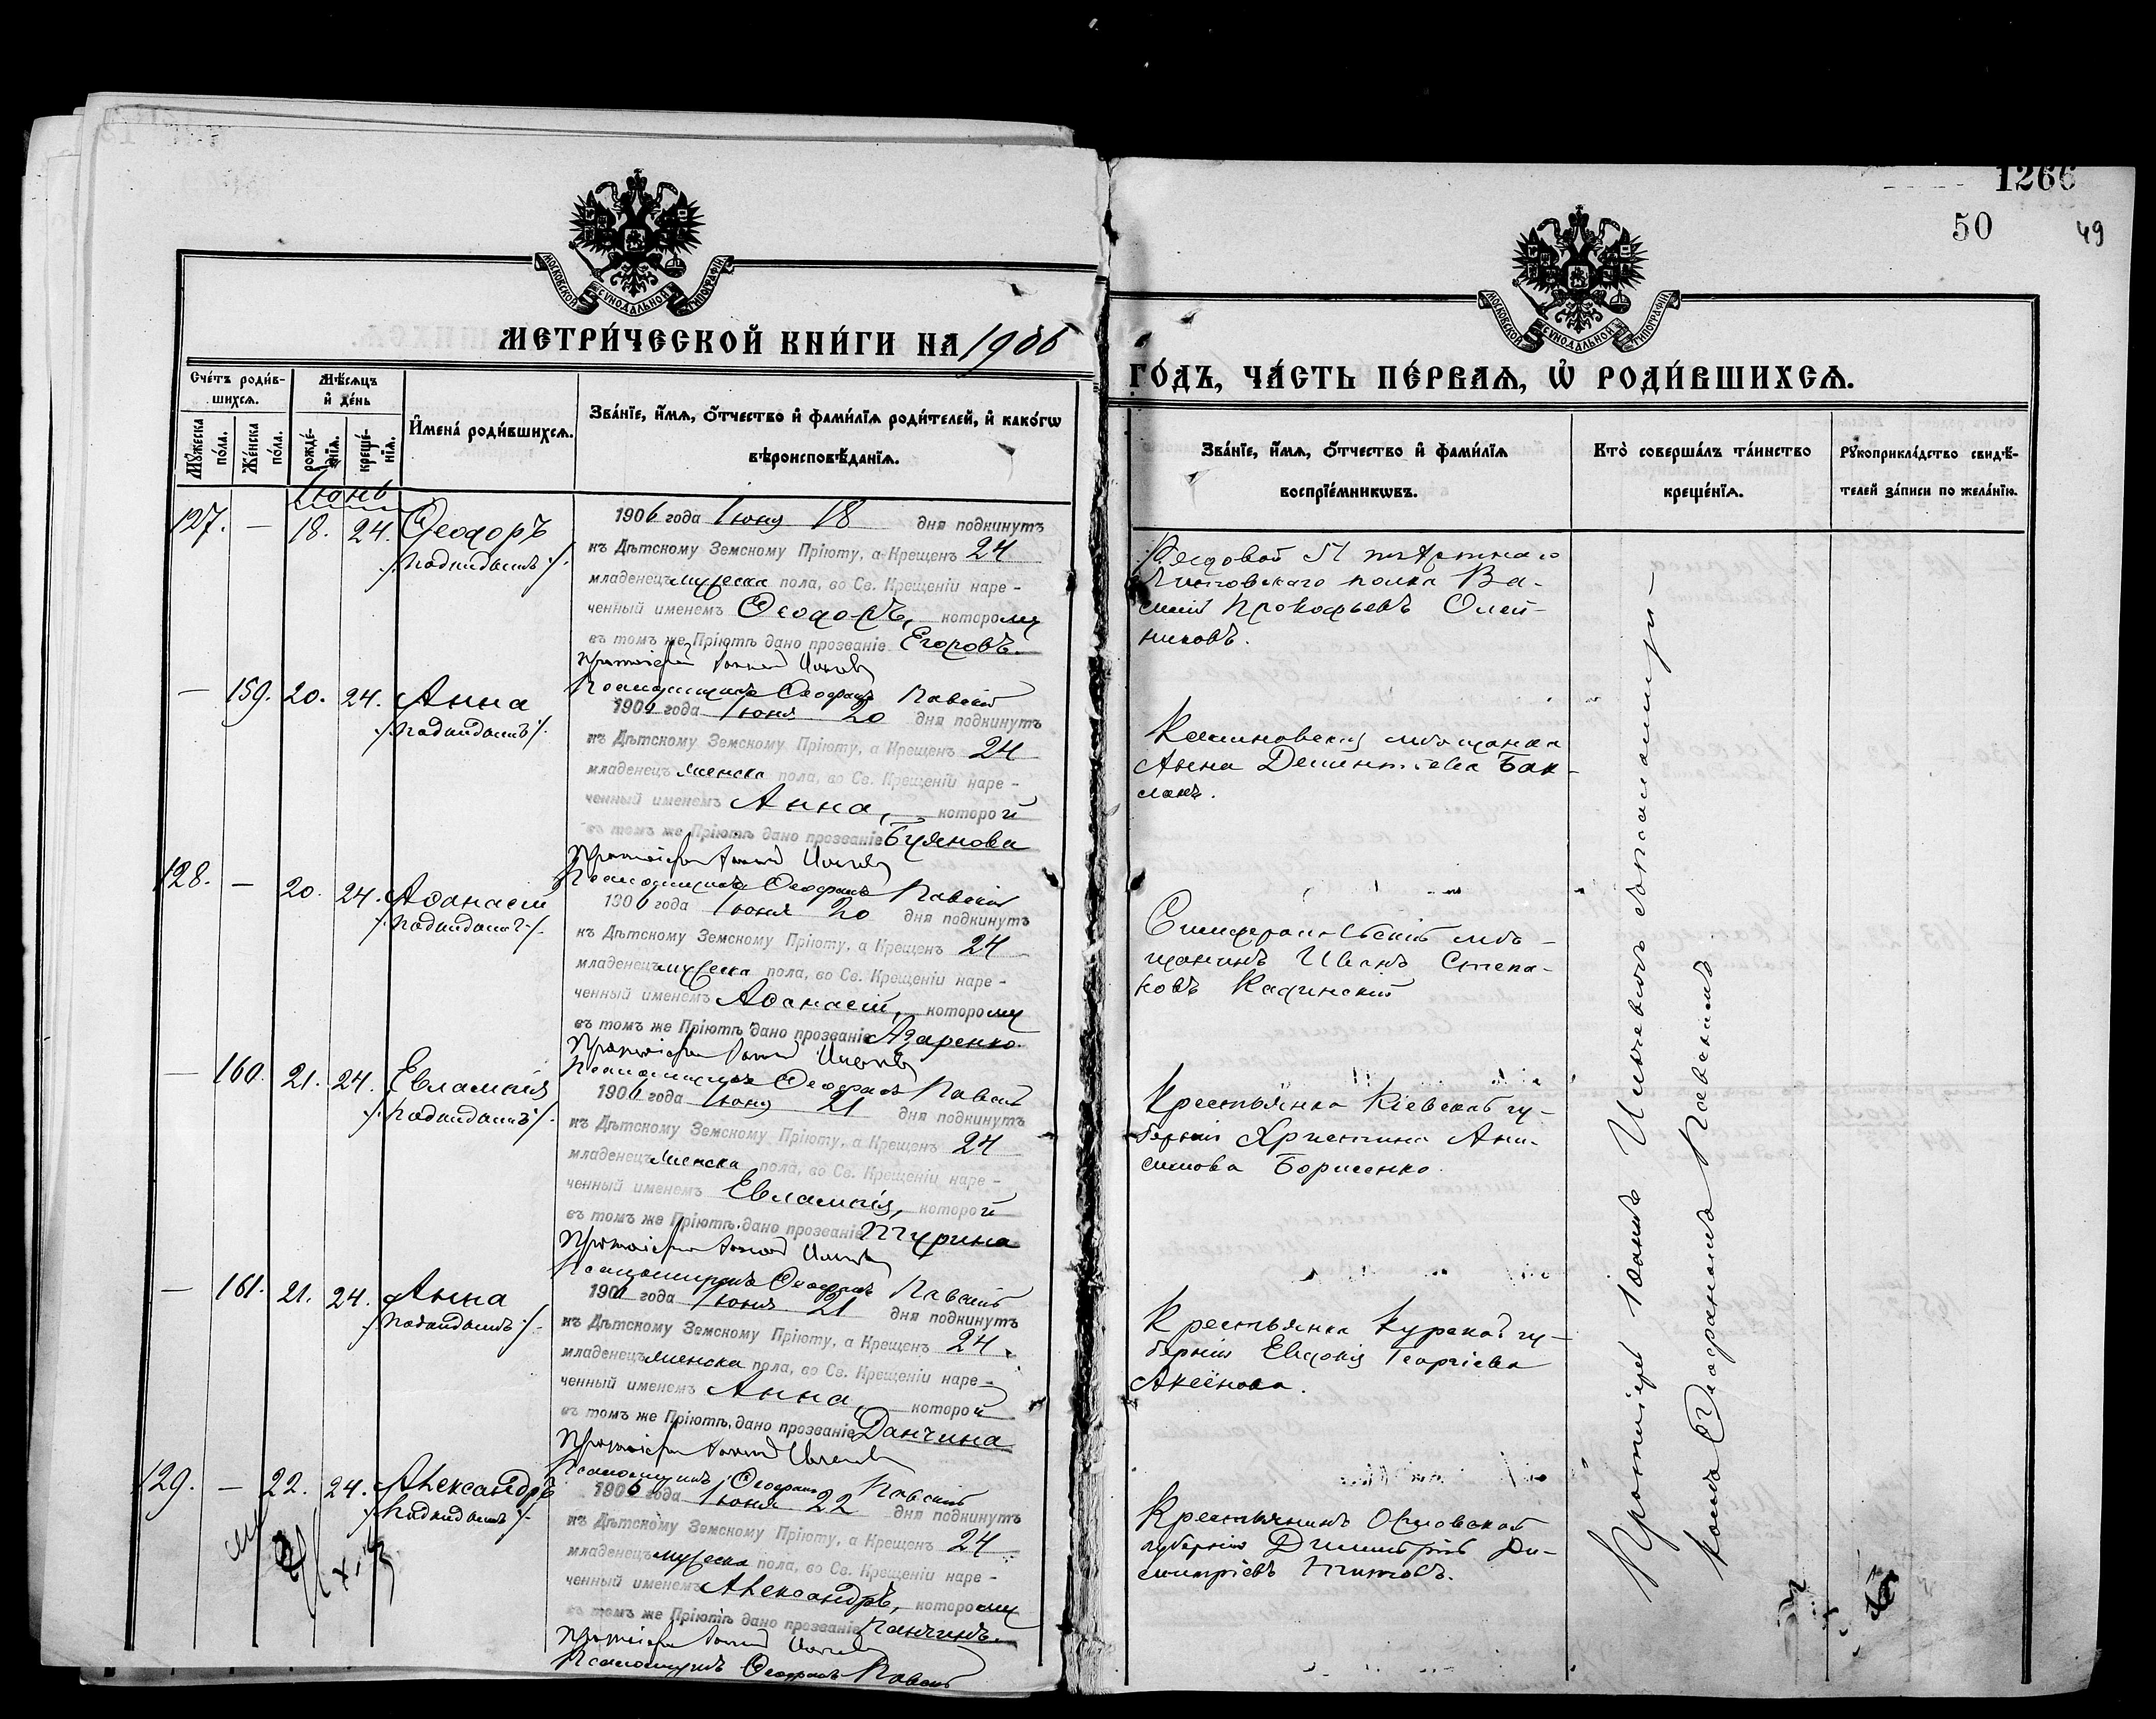 1266
50
49
МОСКОВСКОЙ СѴНОДАЛЬНОЙ ТИПОГРАФІИ
МОСКОВСКОЙ СѴНОДАЛЬНОЙ ТИПОГРАФІИ
МЕТРИ́ЧЕСКОЙ КНИ́ГИ НА 1906
ГО́ДЪ, ЧА́СТЬ ПЕ́РВАѦ, Ѡ҆ РОДИ́ВШИХСѦ.
Сче́тъ роди́в-
шихсѧ.
Мꙋ́жеска по́ла.
Же́нска по́ла.
Мѣ́сѧцъ
и҆ де́нь
рожде́-нїѧ.
креще́-нїѧ.
И҆мена́ роди́вшихсѧ.
Зва́нїе, и҆́мѧ, ѻ҆́тчество и҆ фами́лїѧ роди́телей, и҆ како́гѡ
вѣроисповѣ́данїѧ.
Зва́нїе, и҆́мѧ, ѻ҆́тчество и҆ фами́лїѧ
воспрїе́мникѡвъ.
Кто̀ соверша́лъ та́инство
креще́нїѧ.
Рꙋкоприкла́дство свидѣ́-
телей за́писи по жела́нїю.
Іюнь
127. — 18. 24. Ѳеодоръ
/:подкидышъ:/
1906 года Іюня 18 дня подкинутъ
къ Дѣтскому Земскому Пріюту, а Крещенъ 24
младенецъ мужеска пола, во Св. Крещеніи наре-
ченный именемъ Ѳеодоръ, которому
въ томъ же Пріютѣ дано прозваніе Егоровъ.
Протоіерей Іоаннъ
Псаломщикъ Ѳеофанъ Павскій
Рядовой 51 пѣхотнаго
Литовскаго полка Ва-
силій Прокофьевъ Олей-
никовъ.
— 159. 20. 24. Анна
/:подкидышъ:/
1906 года Іюня 20 дня подкинутъ
къ Дѣтскому Земскому Пріюту, а Крещенъ 24
младенецъ женска пола, во Св. Крещеніи наре-
ченный именемъ Анна, которой
въ томъ же Пріютѣ дано прозваніе Буянова
Протоіерей Іоаннъ
Псаломщикъ Ѳеофанъ Павскій
мѣщанка
Анна Дементіева Бак-
ланъ.
128. — 20. 24. Аѳанасій
/:подкидышъ:/
1906 года Іюня 20 дня подкинутъ
къ Дѣтскому Земскому Пріюту, а Крещенъ 24
младенецъ мужеска пола, во Св. Крещеніи наре-
ченный именемъ Аѳанасій, которому
въ томъ же Пріютѣ дано прозваніе Азаренко.
Протоіерей Іоаннъ
Псаломщикъ Ѳеофанъ Павскій
Симферопольскій мѣ-
щанинъ Иванъ Степа-
новъ
— 160. 21. 24. Евлампія
/:подкидышъ:/
1906 года Іюня 21 дня подкинутъ
къ Дѣтскому Земскому Пріюту, а Крещенъ 24
младенецъ женска пола, во Св. Крещеніи наре-
ченный именемъ Евлампія, которой
въ томъ же Пріютѣ дано прозваніе Тчурина
Протоіерей Іоаннъ
Псаломщикъ Ѳеофанъ Павскій
Крестьянка Кіевской гу-
берніи Христина Ани-
симова Борисенко.
— 161. 21. 24. Анна
/:подкидышъ:/
1906 года Іюня 21 дня подкинутъ
къ Дѣтскому Земскому Пріюту, а Крещенъ 24
младенецъ женска пола, во Св. Крещеніи наре-
ченный именемъ Анна, которой
въ томъ же Пріютѣ дано прозваніе Данчина
Протоіерей Іоаннъ
Псаломщикъ Ѳеофанъ Павскій
Крестьянка Курской гу-
берніи Евдокія Георгіева
Аксенова.
129. — 22. 24. Александръ
/:подкидышъ:/
1906 года Іюня 22 дня подкинутъ
къ Дѣтскому Земскому Пріюту, а Крещенъ 24
младенецъ мужеска пола, во Св. Крещеніи наре-
ченный именемъ Александръ, которому
въ томъ же Пріютѣ дано прозваніе Панчинъ.
Протоіерей Іоаннъ
Псаломщикъ Ѳеофанъ Павскій
Крестьянинъ Орловской
губерніи Димитрій Ди-
митріевъ Титовъ.
Протоіерей Іоаннъ съ псаломщи-
комъ Ѳеофаномъ Павскимъ